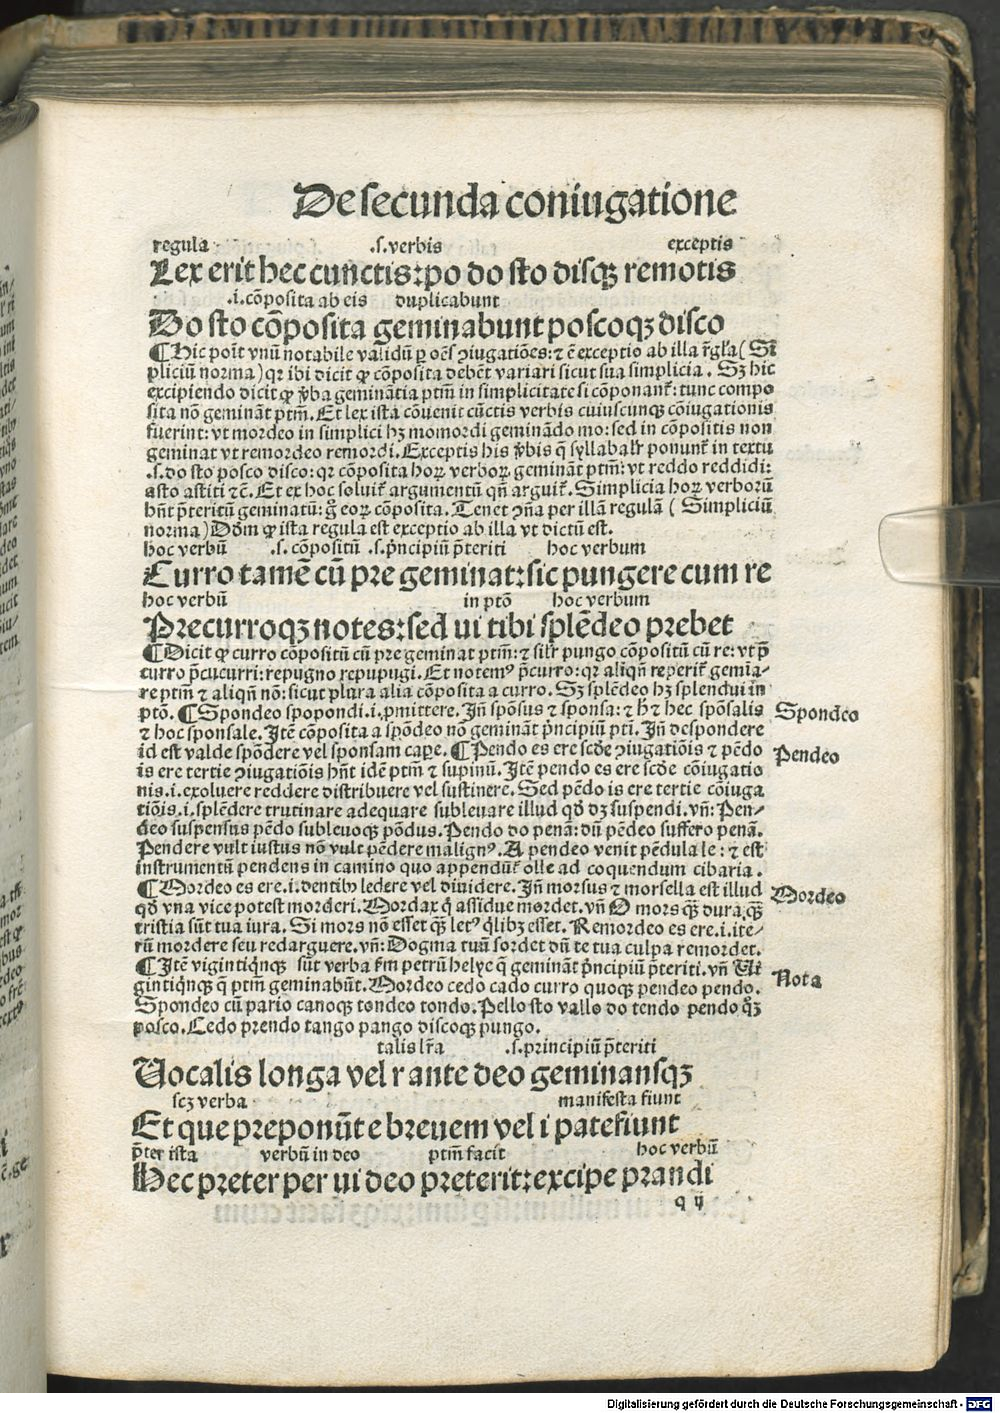 De secunda coniugatione
regula .s.verbis exceptis
Lex erit hec cunctis: po do sto disqꝫ remotis
.i.cōposita ab eis duplicabunt
Do sto cōposita geminabunt poscoqꝫ disco
¶Hic poīt vnū notabile validū ꝑ oēs ꝯiugatiōes: ⁊ ē exceptio ab illa r̄gl̄a( Si
pliciū norma) qꝛ ibi dicit ꝙ cōposita debēt variari sicut sua simplicia. Sꝫ hic
excipiendo dicit ꝙ v̄ba geminātia ptm̄ in simplicitate si cōponant᷑: tunc compo
sita nō gemināt ptm̄. Et lex ista cōuenit cūctis verbis cuiuscunqꝫ cōiugationis
fuerint: vt mordeo in simplici hꝫ momordi geminādo mo: sed in cōpositis non
geminat vt remordeo remordi. Exceptis his v̄bis q̄ syllabalr̄ ponunt᷑ in textu
.s.do sto posco disco: qꝛ cōposita hoꝝ verboꝝ gemināt ptm̄: vt reddo reddidi:
asto astiti ⁊c̄. Et ex hoc soluit᷑ argumentū qn̄ arguit᷑. Simplicia hoꝝ verborū
hn̄t p̄teritū geminatū: g̊ eoꝝ cōposita. Tenet ꝯn̄a per illā regulā ( Simpliciū
norma) Dōm ꝙ ista regula est exceptio ab illa vt dictū est.
hoc verbū .s. cōpositū .s.p̄ncipiū p̄teriti hoc verbum
Curro tamē cū pre geminat: sic pungere cum re
hoc verbū in ptō hoc verbum
Precurroqꝫ notes: sed ui tibi splēdeo prebet
¶Dicit ꝙ curro cōpositū cū pre geminat ptm̄: ⁊ silr̄ pungo cōpositū cū re: vt p̄
curro p̄cucurri: repugno repupugi. Et notemꝰ p̄curro: qꝛ aliqn̄ reperit᷑ gemīa-
re ptm̄ ⁊ aliqn̄ nō: sicut plura alia cōposita a curro. Sꝫ splēdeo hꝫ splendui in
ptō. ¶Spondeo spopondi.i.ꝓmittere. Jn̄ spōsus ⁊ sponsa: ⁊ h̄ ⁊ hec spōsalis
Spondeo
⁊ hoc sponsale. Jtē cōposita a spōdeo nō gemināt p̄ncipiū pti. Jn̄ despondere
id est valde spōdere vel sponsam caꝑe. ¶Pendo es ere scd̄e ꝯiugatiōis ⁊ pēdo
Pendeo
is ere tertie ꝯiugatiōis hn̄t idē ptm̄ ⁊ supinū. Jtē pendo es ere scd̄e cōiugatio
nis.i.exoluere reddere distribuere vel sustinere. Sed pēdo is ere tertie cōiuga
tiōis.i.splēdere trutinare adequare subleuare illud qd̄ dꝫ suspendi. vn̄: Pen-
deo suspensus pēdo subleuoqꝫ pōdus. Pendo do penā: dū pēdeo suffero penā.
Pendere vult iustus nō vult pēdere malignꝰ. A pendeo venit pēdula le: ⁊ est
instrumentū pendens in camino quo appendūt᷑ olle ad coquendum cibaria.
¶Mordeo es ere.i.dentibꝰ ledere vel diuidere. Jn̄ morsus ⁊ morsella est illud
Mordeo
qd̄ vna vice potest morderi. Mordax q̇ assidue mordet. vn̄ O mors qꝫ̄ dura qꝫ̄
tristia sūt tua iura. Si mors nō esset qꝫ̄ letꝰ q̇libꝫ esset. Remordeo es ere.i.ite-
rū mordere seu redarguere. vn̄: Dogma tuū sordet dū te tua culpa remordet.
¶Jtē vigintiqn̄qꝫ sūt verba ẜm petrū helyc̄ q̄ gemināt p̄ncipiū p̄teriti. vn̄ Vi
Nota
gintiqn̄qꝫ q̄ ptm̄ geminabūt. Mordeo cedo cado curro quoqꝫ pendeo pendo.
Spondeo cū pario canoqꝫ tondeo tondo. Pello sto vallo do tendo pendo qꝫ̄
posco. Cedo prendo tango pango discoqꝫ pungo.
talis lr̄a .s.principiū p̄teriti
Vocalis longa vel r ante deo geminansqꝫ
scꝫ verba manifesta fiunt
Et que preponūt e breuem vel i patefiunt
p̄ter ista verbū in deo ptm̄ facit hoc verbū
Hec preter per ui deo preterit: excipe prandi
q ij
Digitalisierung gefördert durch die Deutsche Forschungsgemeinschaft - DFG